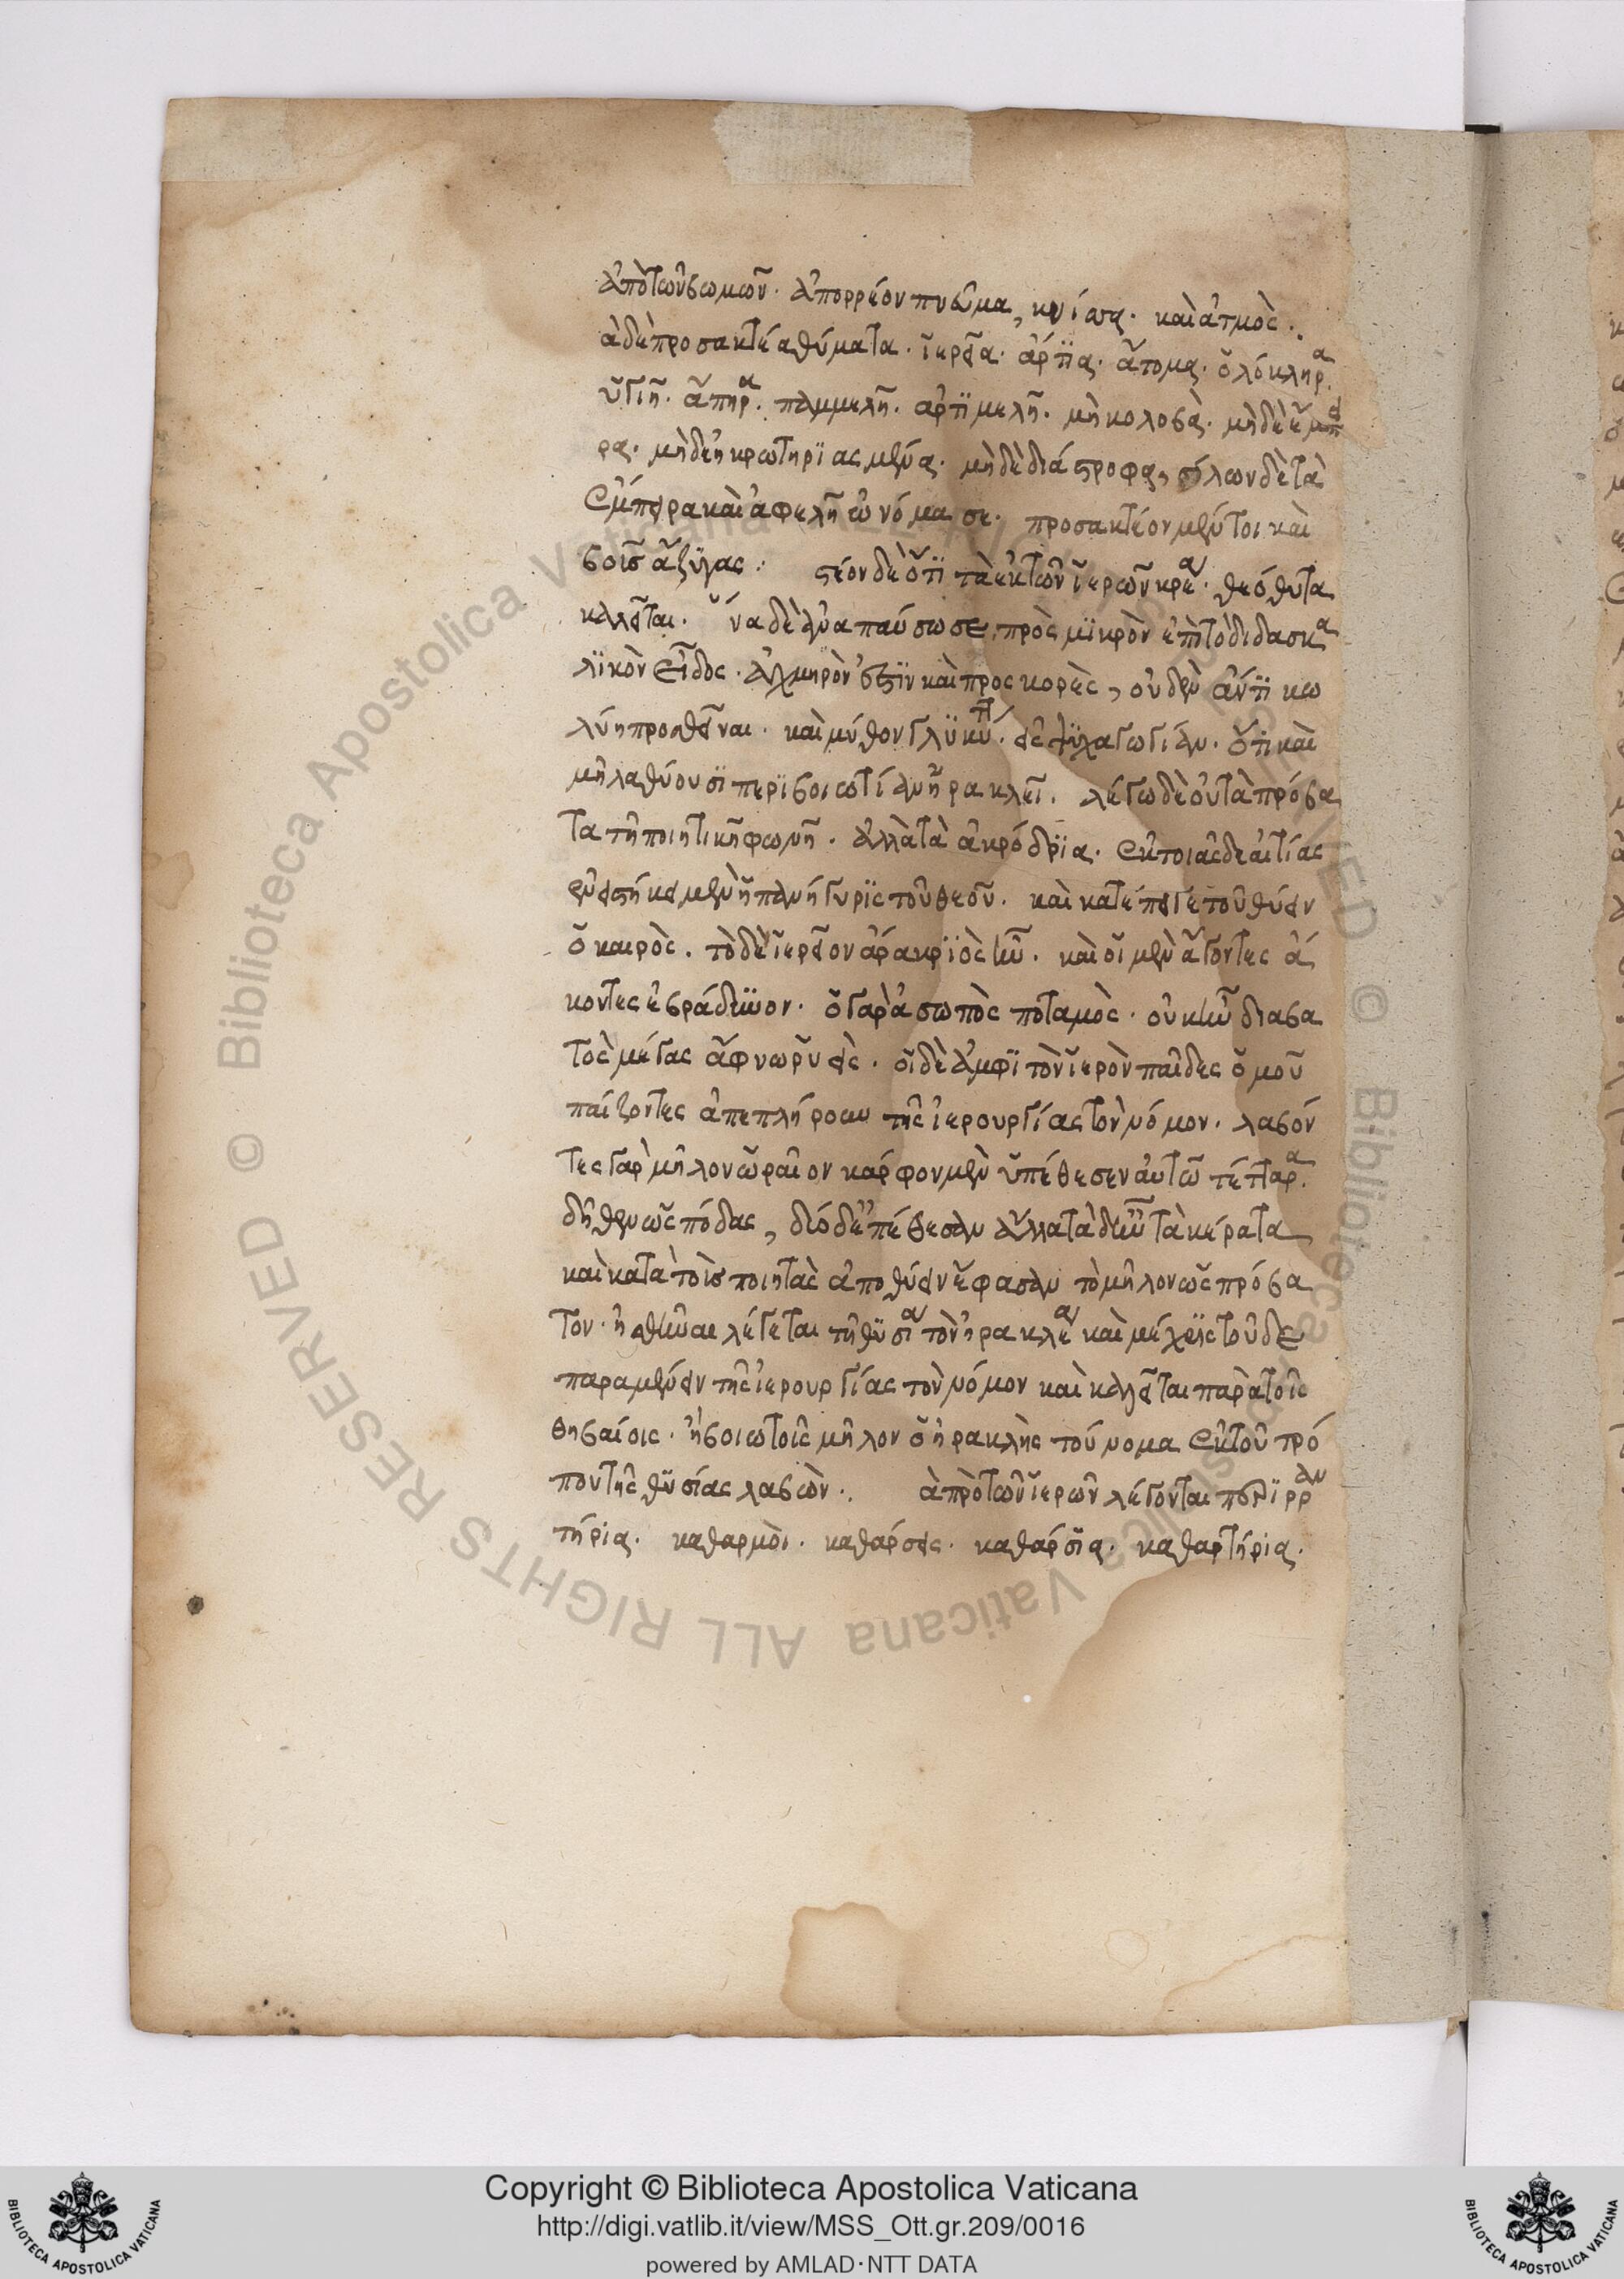 ἀπὸ τῶν βωμῶν. ἀπορρέον πνεῦμα, κνίσα. καὶ ἀτμὸς.
ἃ δὲ προσακτέα θύματα. ἱερεῖα. ἄρτια. ἄτομα. ὁλόκληρα.
ὑγιῆ. ἄπηρα. παμμελῆ. ἀρτιμελῆ. μὴ κολοβὰ. μηδὲ ἔμπη
ρα. μηδὲ ἠκρωτηριασμένα. μηδὲ διάστροφα, σόλων δὲ τὰ
ἔμπειρα καὶ ἀφελῆ ὠνόμασε. προσακτέον μέντοι καὶ
βοῦς ἄζυγας. στέον δὲ ὅτι τὰ ἐκ τῶν ἱερῶν κρέα. θεόθυτα
καλεῖται. ἵνα δὲ ἀναπαύσω σε, πρὸς μικρὸν ἐπὶ τὸ διδασκα
λικὸν εἶδος. αὐχμηρὸν ἐστὶν καὶ προσκορὲς, οὐδὲν ἄν τι κω
λύη προσθεῖναι. καὶ μύθον γλυκύν. εἰς ψυχαγωγίαν. ὅτι καὶ
μῆλα θύουσι περὶ βοιωτίαν ἡρακλεῖ. λέγω δὲ οὐ τὰ πρόβα
τα τῇ ποιητικῇ φωνῇ. ἀλλὰ τὰ ἀκρόδρια. ἐκ τοιᾶσδε αἰτίας
ἐνειστήκει μὲν ἡ πανήγυρις τοῦ θεοῦ. καὶ κατέπειγε τοῦ θύειν
ὁ καιρὸς. τὸ δὲ ἱερεῖον ἄρα κριὸς ἦν. καὶ οἱ μὲν ἄγοντες ἄ
κοντες ἐβράδυνον. ὁ γὰρ ἀσωπὸς ποταμὸς. οὐκ ἦν διαβα
τὸς μέγας ἄφνω ῥυεὶς. οἱ δὲ ἀμφὶ τὸν ἱερὸν παῖδες ὁμοῦ
παίζοντες ἀπεπλήρουν τῆς ἱερουργίας τὸν νόμον. λαβόν
τες γὰρ μῆλον ὡραῖον κάρφον μὲν ὑπέθεσεν αὐτῶ τέτταρα.
δῆθεν ὡς πόδας, δύο δὲ ἐπέθεσαν ἄλλα τὰ δὲ ἦν τὰ κέρατα
καὶ κατὰ τοὺς ποιητὰς ἀποθύειν ἔφασαν τὸ μῆλον ὡς πρόβα
τον. ἡσθῆναι λέγεται τῇ θυσία τὸν ἡρακλέα καὶ μέχρις τοῦδε
παραμένειν τῆς ἱερουργίας τὸν νόμον καὶ καλεῖται παρὰ τοῖς
θηβαίοις. ἢ βοιωτοῖς μῆλον ὁ ἡρακλῆς τοὔνομα ἐκ τοῦ τρό
που τῆς θυσίας λαβὼν. ἃ πρὸ τῶν ἱερῶν λέγονται περιρραν
τήρια. καθαρμοὶ. καθάρσεις. καθάρσια. καθαρτήρια.
Copyright © Biblioteca Apostolica Vaticana
http://digi.vatlib.it/view/MSS_Ott.gr.209/0016
powered by AMLAD·NTT DATA
BIBLIOTECA APOSTOLICA VATICANA
BIBLIOTECA APOSTOLICA VATICANA
© Biblioteca Apostolica Vaticana ALL RIGHTS RESERVED